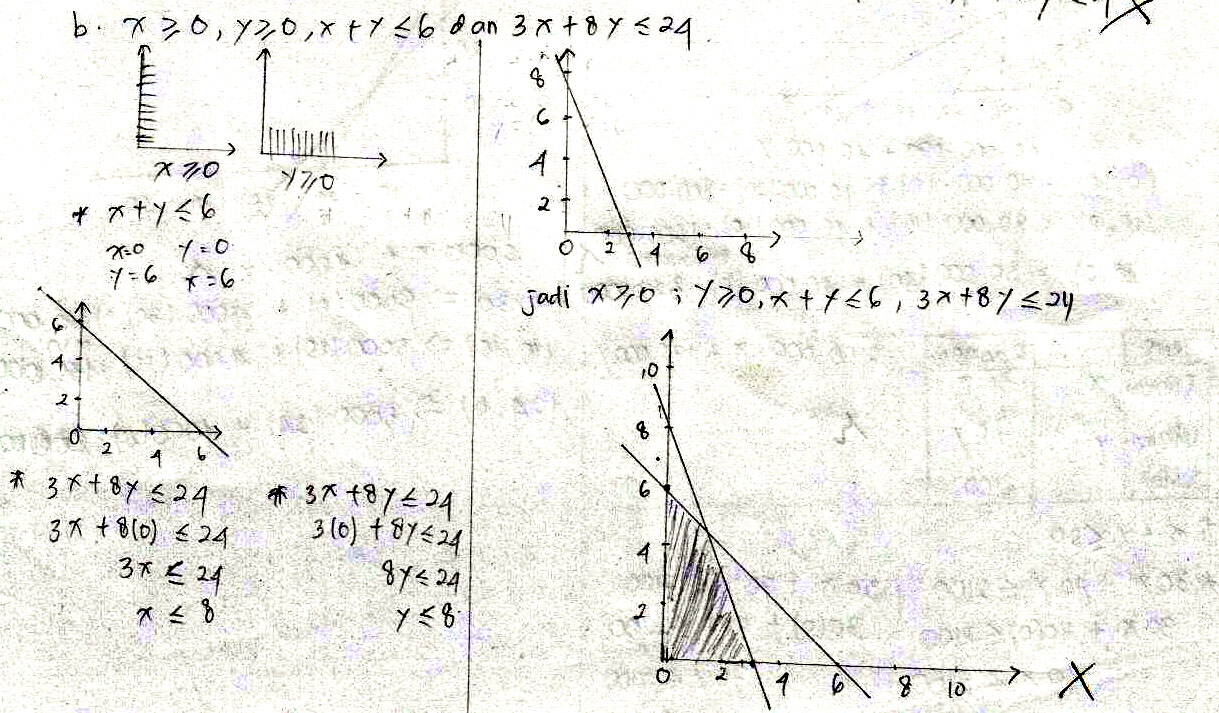 b. x ≥ 0, y ≥ 0, x + y ≤ 6 dan 3x + 8y ≤ 24
x ≥ 0
y ≥ 0
* x + y ≤ 6
x=0 y=0
y=6 x=6
6
4
2
0 2 4 6
* 3x + 8y ≤ 24
3x + 8(0) ≤ 24
3x ≤ 24
x ≤ 8
* 3x + 8y ≤ 24
3(0) + 8y ≤ 24
8y ≤ 24
y ≤ 8
8
6
4
2
0 2 4 6 8
jadi x ≥ 0 ; y ≥ 0, x + y ≤ 6, 3x + 8y ≤ 24
10
8
6
4
2
0 2 4 6 8 10
X